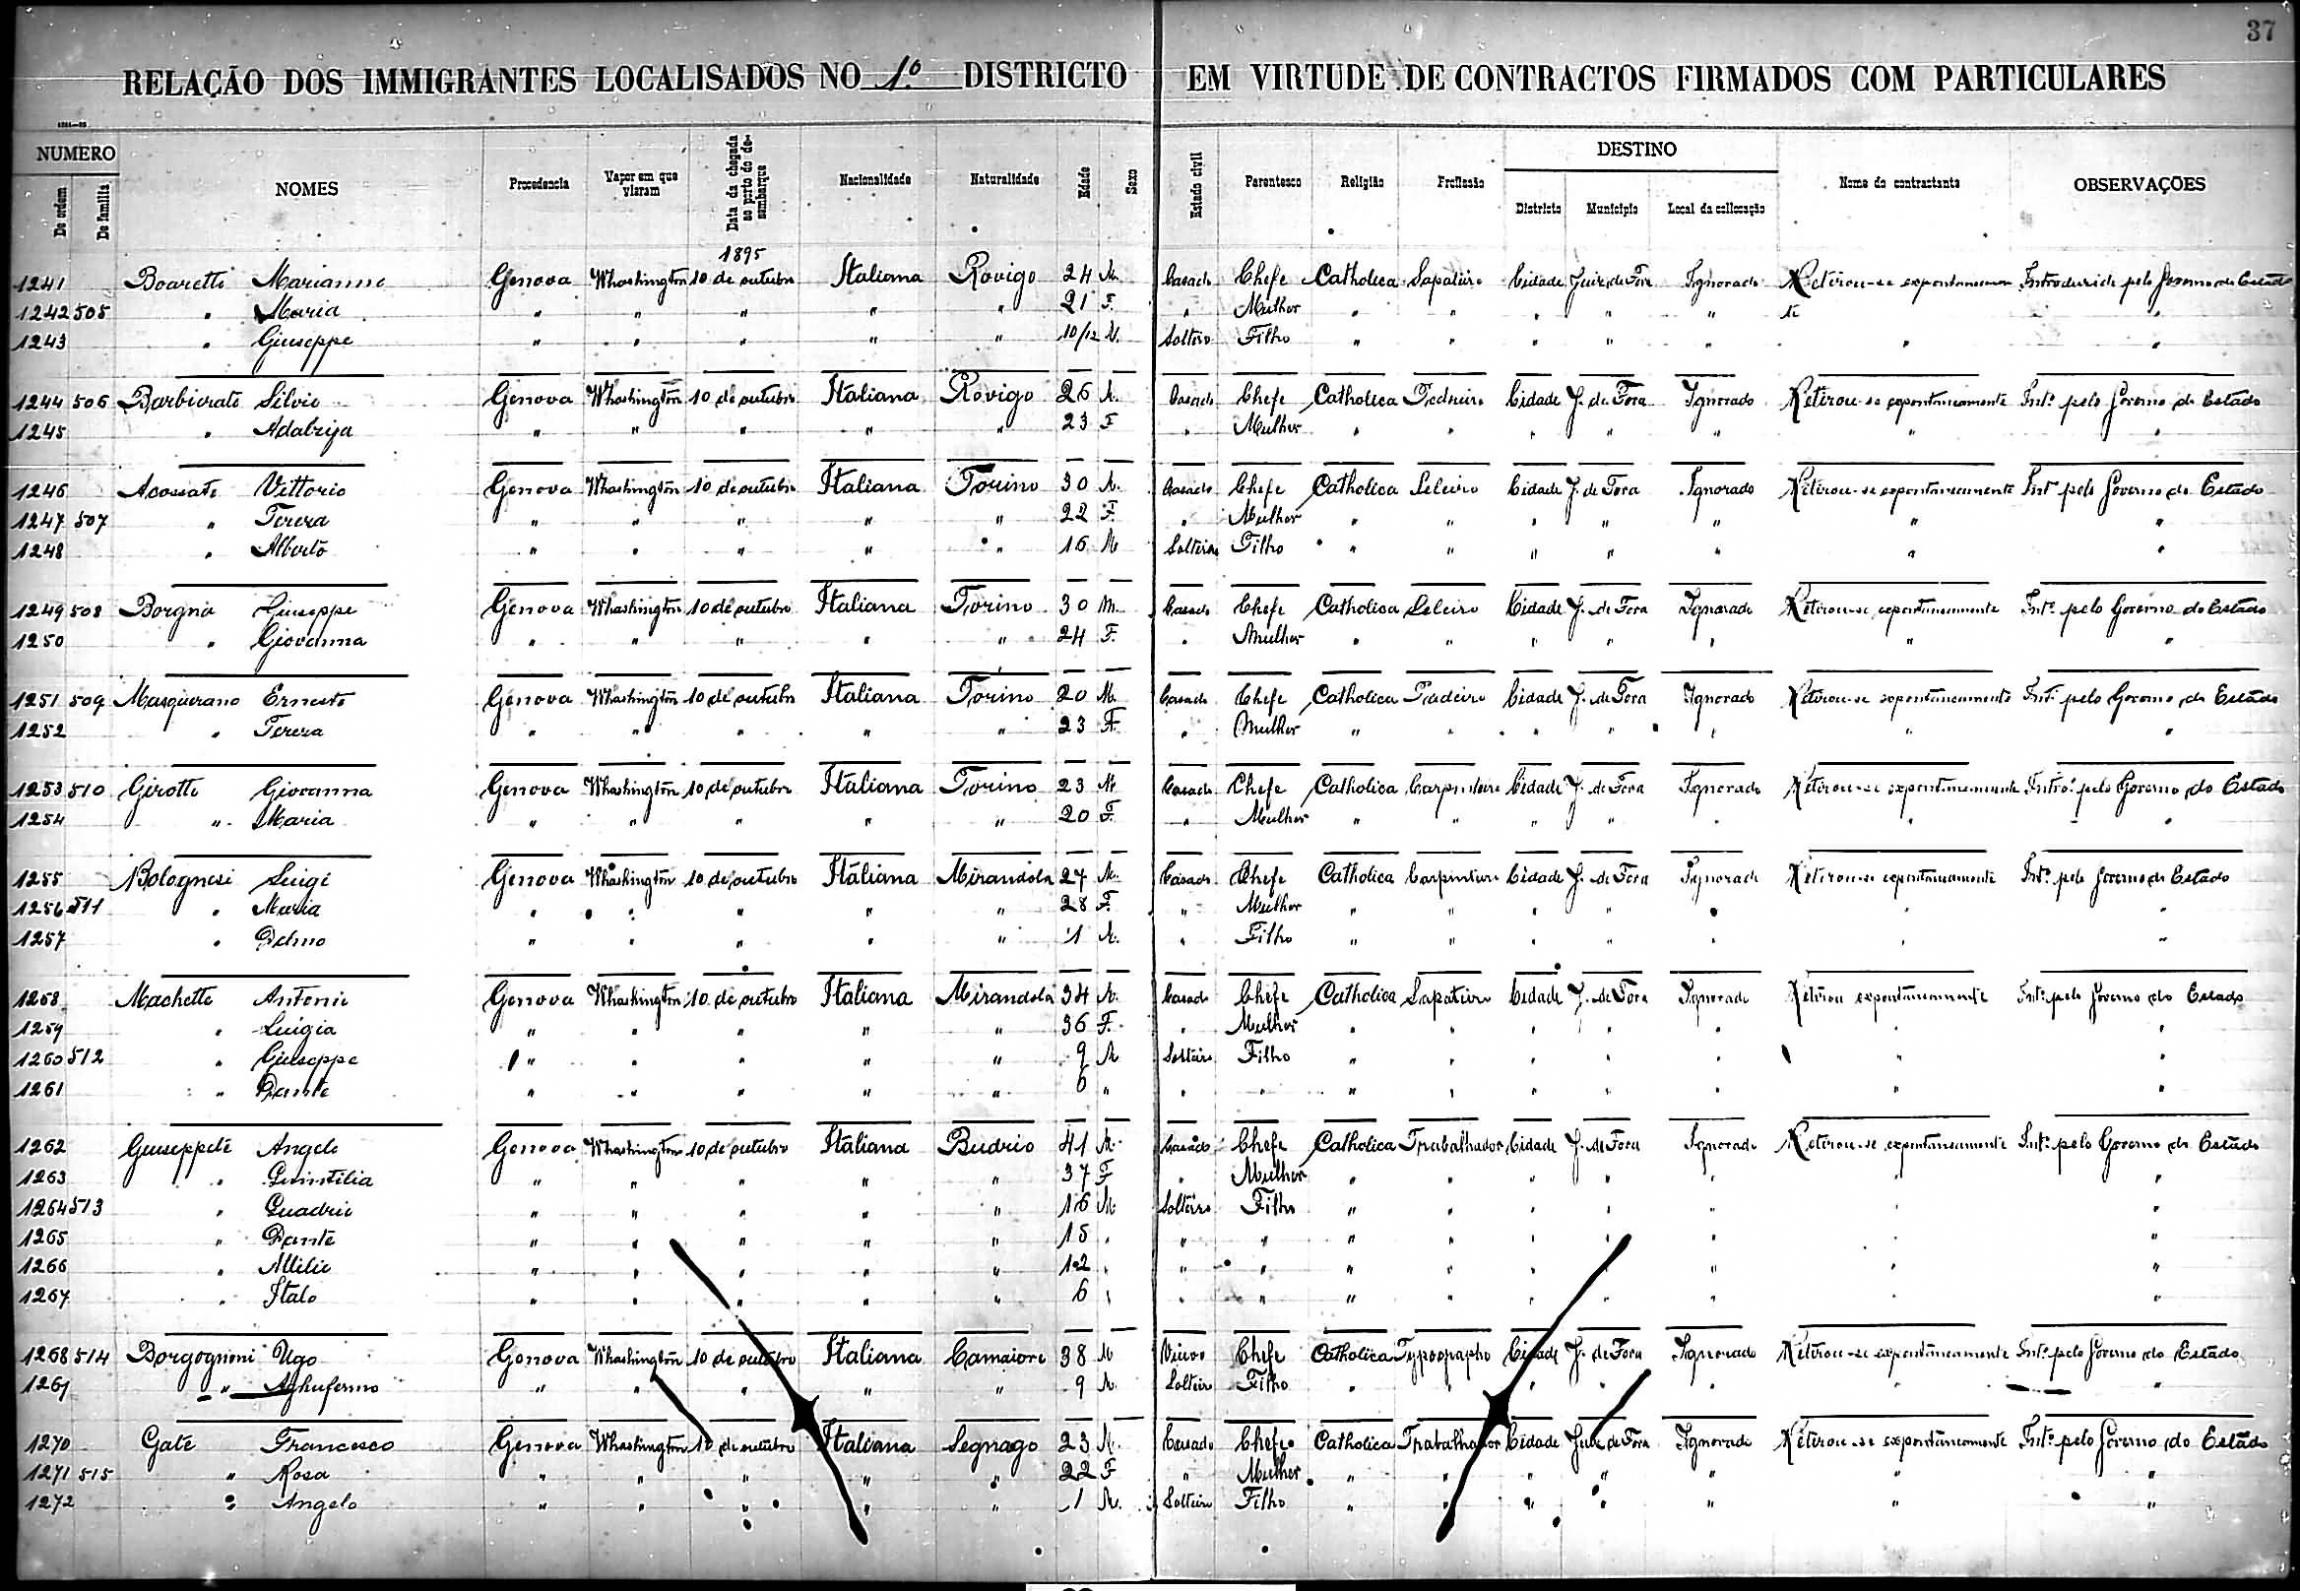 37
RELAÇÃO DOS IMMIGRANTES LOCALISADOS NO 1º DISTRICTO EM VIRTUDE DE CONTRACTOS FIRMADOS COM PARTICULARES
NUMERO
De ordem De familia NOMES Procedencia Vapor em que vieram Data da chegada ao porto do desembarque Nacionalidade Naturalidade Edade Sexo Estado civil Parentesco Religião Profissão DESTINO Districto Municipio Local da collocação Nome do contractante OBSERVAÇÕES
1895
1241 Boaretti Marianno Genova Whashington 10 de outubro Italiana Rovigo 24 M. Casado Chefe Catholica Sapateiro Cidade Juiz de Fora Ignorado Retirou-se Introduzido pelo Governo do Estado
1242 505 " Maria " " " " " 21 F. " Mulher " " " " " "
1243 " Giuseppe " " " " " 10/12 M. Solteiro Filho " " " " " " "
1244 506 Barbierato Silvio Genova Whashington 10 de outubro Italiana Rovigo 26 M. Casado Chefe Catholica Pedreiro Cidade J. de Fora Ignorado Retirou-se expontaneamente Int.º pelo Governo do Estado
1245 " " " " " " 23 F " Mulher " " " " " " "
1246 Vittorio Genova Whashington 10 de outubro Italiana Torino 30 M. Casado Chefe Catholica Seleiro Cidade J. de Fora Ignorado Retirou-se expontaneamente Int.º pelo Governo do Estado
1247 507 " Tereza " " " " " 22 F. " Mulher " " " " " " "
1248 " Alberto " " " " " 16 M Solteiro Filho " " " " " " "
1249 508 Borgna Giuseppe Genova Whashington 10 de outubro Italiana Torino 30 M. Casado Chefe Catholica Seleiro Cidade J. de Fora Ignorado Retirou-se expontaneamente Int.º pelo Governo do Estado
1250 " Giovanna " " " " " 24 F. " Mulher " " " " " " "
1251 509 Masquerano Ernesto Genova Whashington 10 de outubro Italiana Torino 20 M. Casado Chefe Catholica Cidade J. de Fora Ignorado Retirou-se expontaneamente Int.º pelo Governo do Estado
1252 " Tereza " " " " " 23 F. " Mulher " " " " " " "
1253 510 Girotto Giovanna Genova Whashington 10 de outubro Italiana Torino 23 M Casado Chefe Catholica Carpinteiro Cidade J. de Fora Ignorado Retirou-se expontaneamente Intro.º pelo Governo do Estado
1254 " Maria " " " " " 20 F. " Mulher " " " " " " "
1255 Bolognesi Luigi Genova Whashington 10 de outubro Italiana Mirandola 27 M. Casado Chefe Catholica Carpinteiro Cidade J. de Fora Ignorado Retirou-se expontaneamente Int.º pelo Governo do Estado
1256 511 " Maria " " " " " 28 F. " Mulher " " " " " " "
1257 " Delmo " " " " " 1 M. " Filho " " " " " " "
1258 Machetto Antonio Genova Whashington 10 de outubro Italiana Mirandola 34 M. Casado Chefe Catholica Sapateiro Cidade J. de Fora Ignorado Retirou expontaneamente Int.º pelo Governo do Estado
1259 " Luigia " " " " " 36 F. " Mulher " " " " " " "
1260 512 " Giuseppe " " " " " 9 M Solteiro Filho " " " " " " "
1261 " Dante " " " " " 6 " " " " " " " " " "
1262 Giuseppete Angelo Genova Whashington 10 de outubro Italiana Budrio 41 M. Casado Chefe Catholica Trabalhador Cidade J. de Fora Ignorado Retirou-se expontaneamente Int.º pelo Governo do Estado
1263 " " " " " " 37 F " Mulher " " " " " " "
1264 513 " " " " " " 16 M. Solteiro Filho " " " " " " "
1265 " Dante " " " " " 15 " " " " " " " " " "
1266 " Attilio " " " " " 12 " " " " " " " " " "
1267 " Italo " " " " " 6 " " " " " " " " " "
1268 514 Borgognoni Ugo Genova Whashington 10 de outubro Italiana Camaiore 38 M Viuvo Chefe Catholica Typographo Cidade J. de Fora Ignorado Retirou-se expontaneamente Int.º pelo Governo do Estado
1269 " " " " " " 9 M. Solteiro Filho " " " " " " "
1270 Gate Francesco Genova Whashington 10 de outubro Italiana Legnago 23 M. Casado Chefe Catholica Trabalhador Cidade Juiz de Fora Ignorado Retirou-se expontaneamente Int.º pelo Governo do Estado
1271 515 " Rosa " " " " " 22 F " Mulher " " " " " " "
1272 " Angelo " " " " " 1 M. Solteiro Filho " " " " " " "